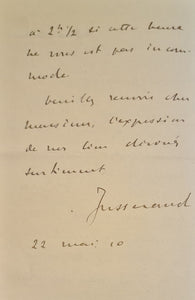 à 2h 1/2 si cette heure
ne vous est pas incom
mode
veuillez recevoir cher
monsieur, l'expression
de mes bien dévoués
sentiments
Jusserand
22 mai 10